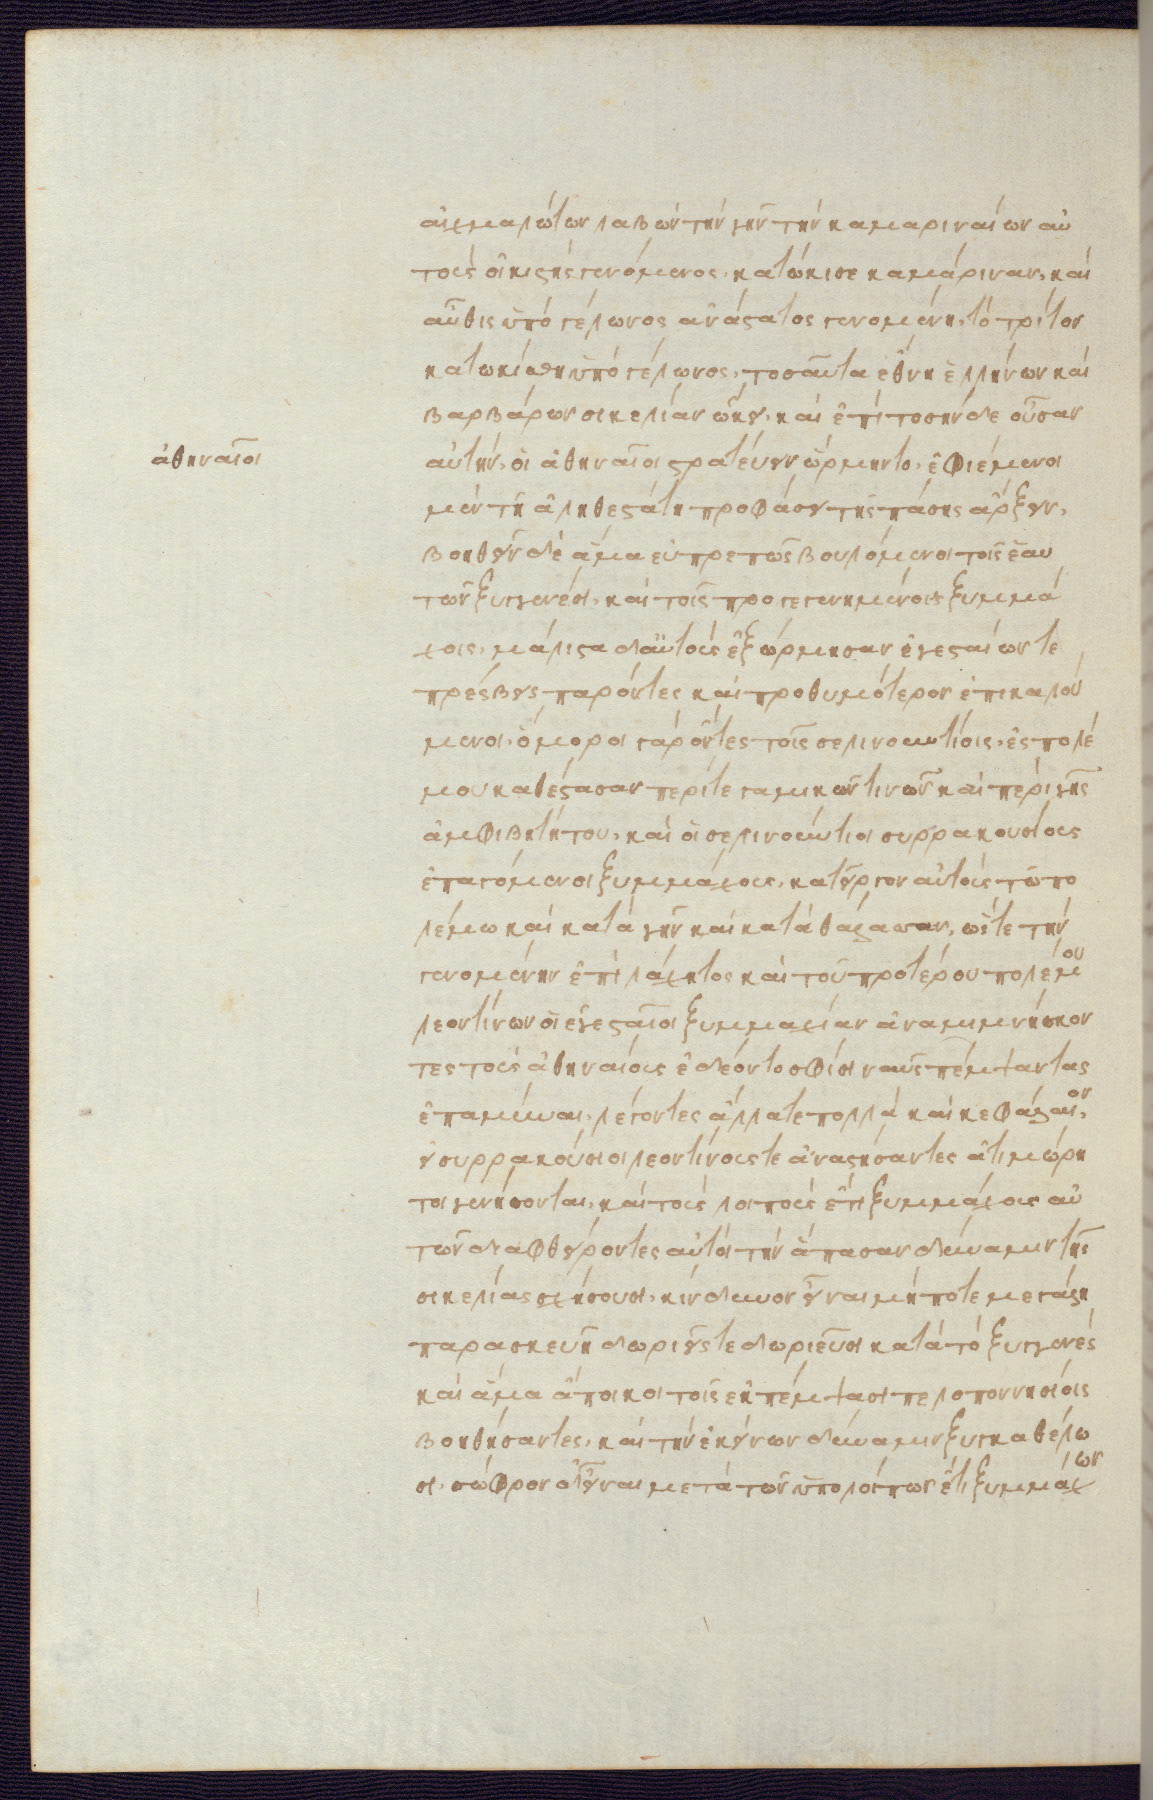 αἰχμαλώτων λαβὼν τὴν γῆν τὴν καμαριναίων αὐ
τοὺς οἰκιστὴς γενόμενος, κατώκισε καμάριναν, καὶ
αὖθις ὑπὸ γέλωνος ἀνάστατος γενομένη, τὸ τρίτον
κατωκίσθη ὑπὸ γέλωνος, τοσαῦτα ἔθνη ἑλλήνων καὶ
βαρβάρων σικελίαν ᾤκει, καὶ ἐπὶ τοσήνδε οὖσαν
ἀθηναῖοι
αὐτὴν, οἱ ἀθηναῖοι στρατεύειν ὥρμηντο, ἐφιέμενοι
μὲν τῆ ἀληθεστάτη προφάσει τῆς πάσης ἄρξειν,
βοηθεῖν δὲ ἅμα εὐπρεπῶς βουλόμενοι τοῖς ἑαυ
τῶν ξυγγενέσι, καὶ τοῖς προγεγενημένοις ξυμμά
χοις, μάλιστα δ' αὐτοὺς ἐξώρμησαν ἐγεσταίων τε
πρέσβεις παρόντες καὶ προθυμότερον ἐπικαλού
μενοι, ὅμοροι γὰρ ὄντες τοῖς σελινουντίοις, ἐς πόλε
μον καθέστασαν περί τε γαμικῶν τινῶν καὶ περὶ γῆς
ἀμφιβητήτου, καὶ οἱ σελινούντιοι συρρακουσίους
ἐπαγόμενοι ξυμμάχους, κατεῖργον αὐτοὺς τῶ πο
λέμω καὶ κατὰ γῆν καὶ κατὰ θάλασσαν, ὥστε τὴν
γενομένην ἐπὶ λάχητος καὶ τοῦ προτέρου πολέμου
λεοντίνων οἱ ἐγεσταῖοι ξυμμαχίαν ἀναμιμνήσκον
τες τοὺς ἀθηναίους ἐδέοντο σφίσι ναῦς πέμψαντας
ἐπαμῦναι, λέγοντες ἄλλα τε πολλὰ καὶ κεφάλαιον,
εἰ συρρακούσιοι λεοντίνους τε ἀναστήσαντες ἀτιμώρη
τοι γενήσονται, καὶ τοὺς λοιποὺς ἔτι ξυμμάχους αὐ
τῶν διαφθείροντες αὐτοὶ τὴν ἅπασαν δύναμιν τῆς
σικελίας σχήσουσι, κίνδυνον εἶναι μήποτε μεγάλη
παρασκευῆ δωριεῖς τε δωριεῦσι κατὰ τὸ ξυγγενὲς
καὶ ἅμα ἄποικοι τοῖς ἐκπέμψασι πελοποννησίοις
βοηθήσαντες, καὶ τὴν ἐκείνων δύναμιν ξυγκαθέλω
σι, σῶφρον δ' εἶναι μετὰ τῶν ὑπολοίπων ἔτι ξυμμάχων